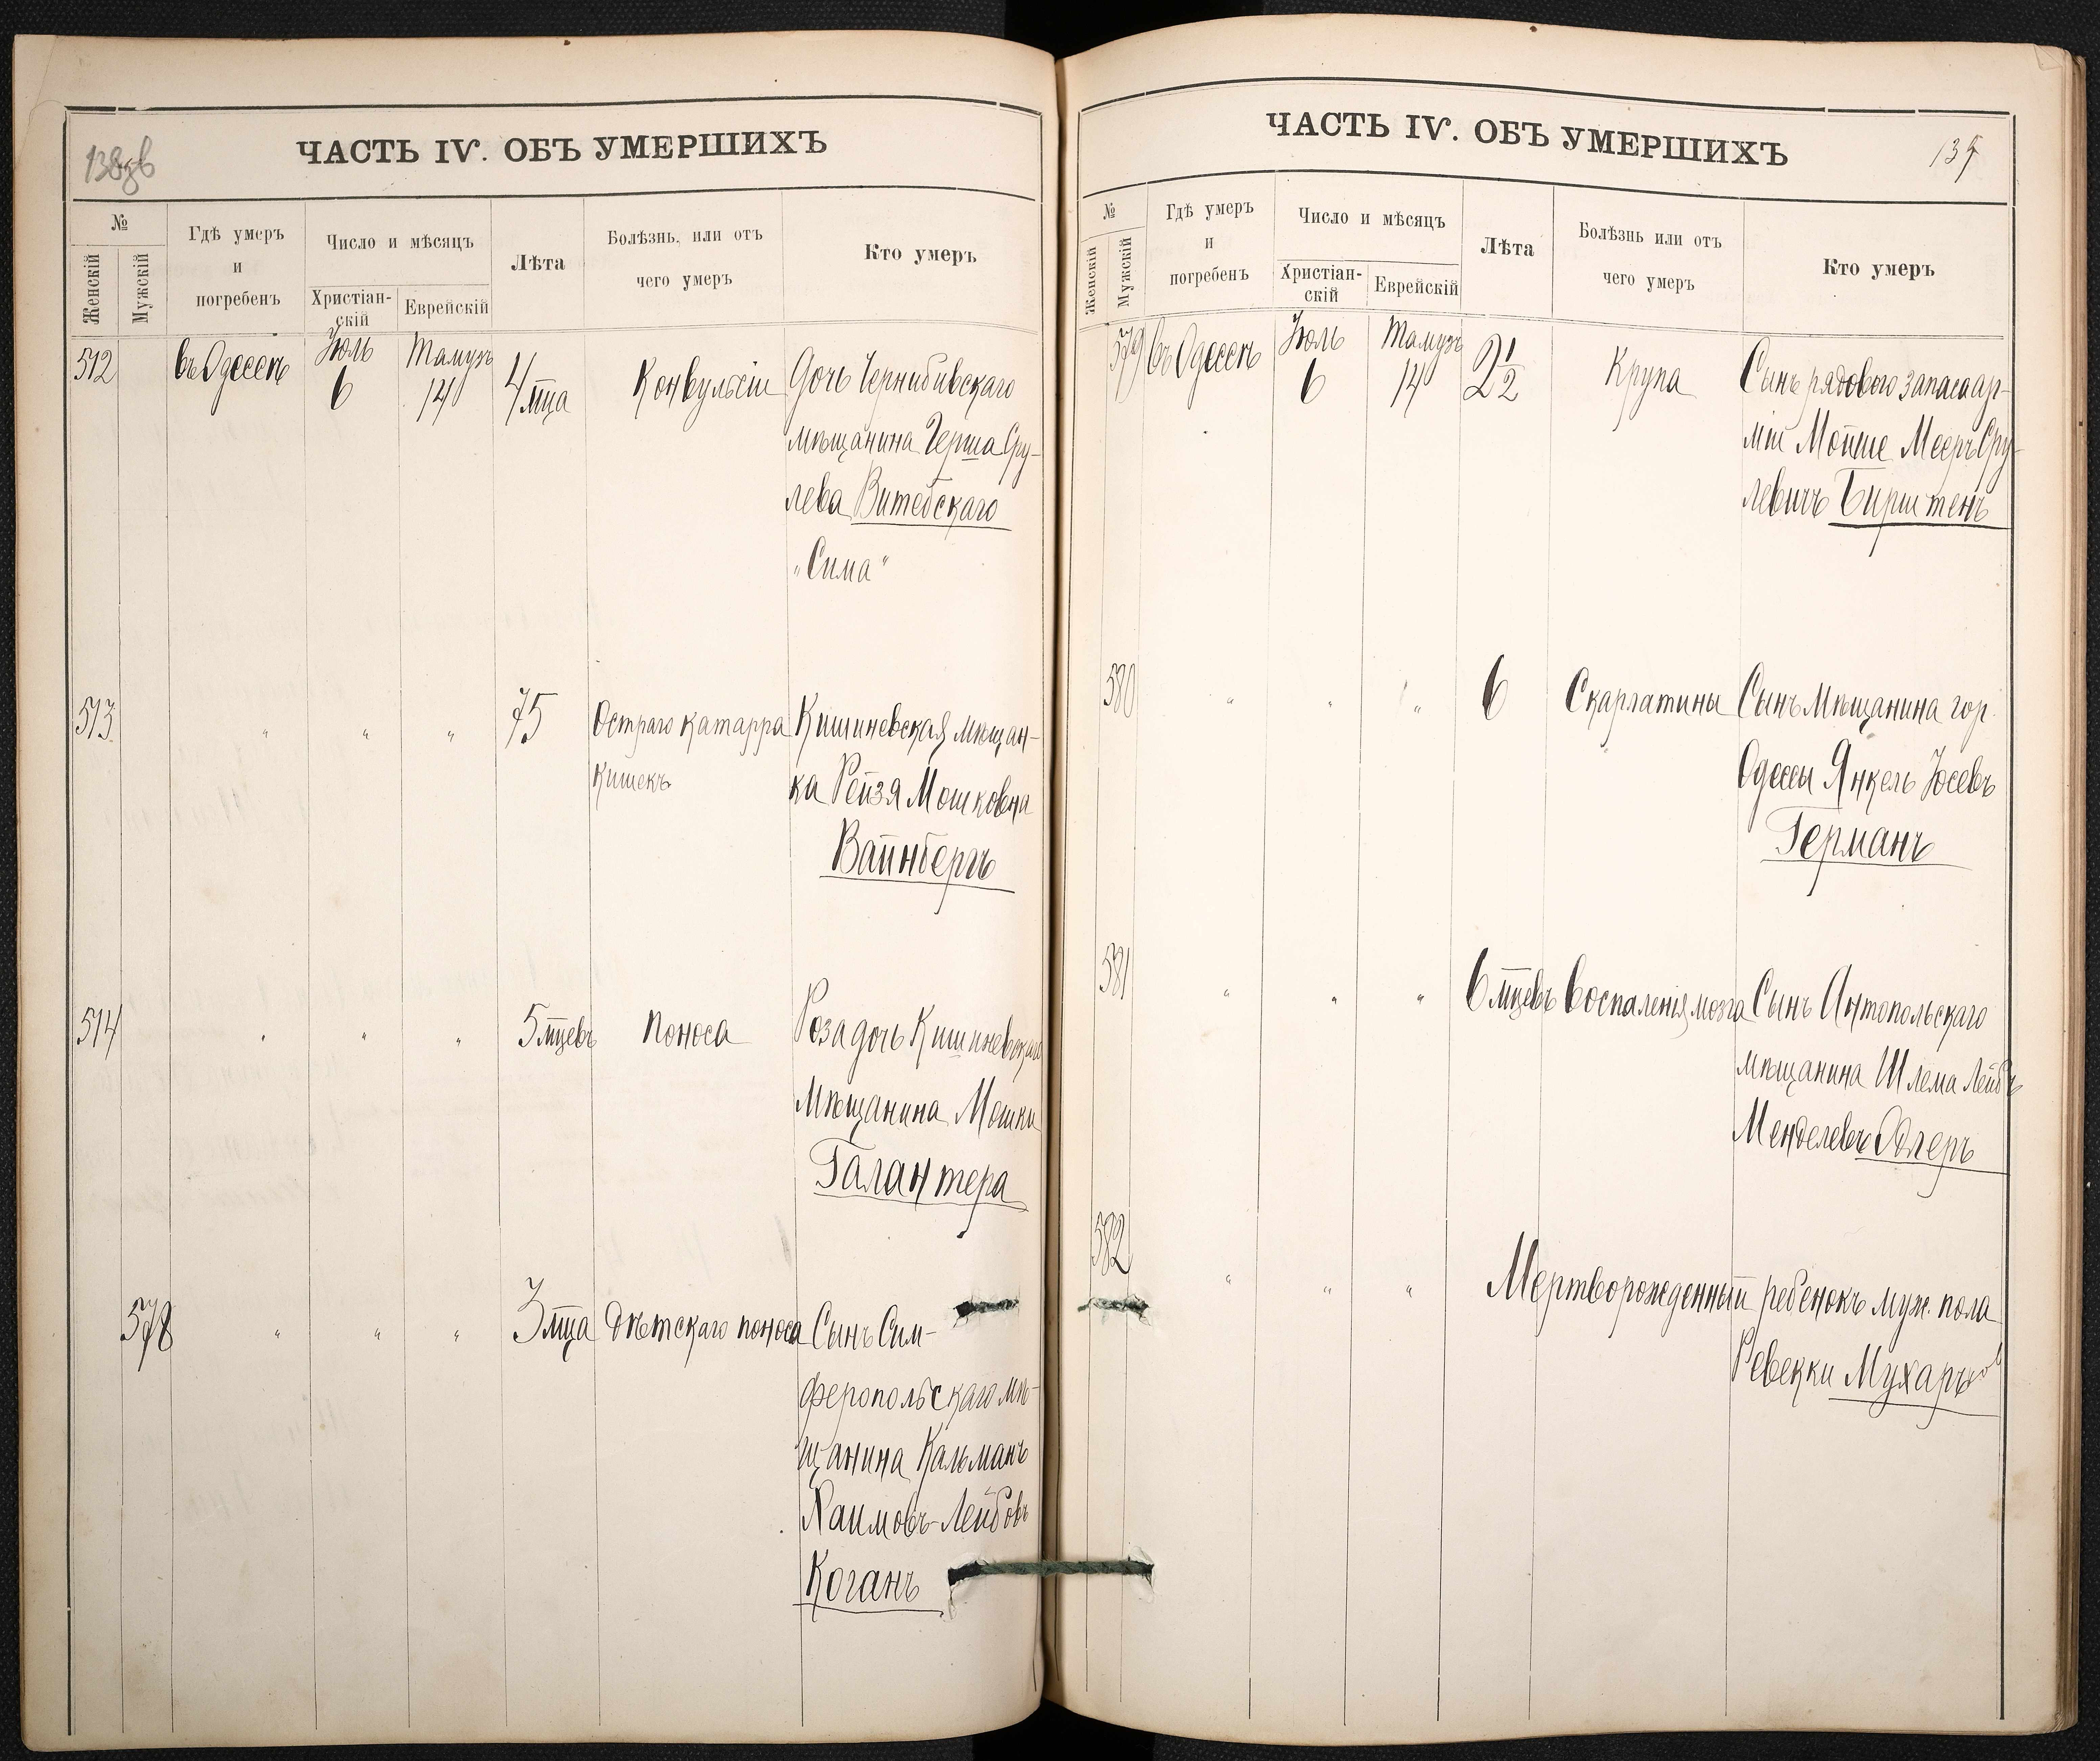 138об
ЧАСТЬ IV. ОБЪ УМЕРШИХЪ
№
Женскій
Мужскій
Гдѣ умеръ
и
погребенъ
Число и мѣсяцъ
Христіан-
скій
Еврейскій
Лѣта
Болѣзнь, или отъ
чего умеръ
Кто умеръ
512 въ Одессѣ Юль 6 Тамузъ 14 4 мца Конвульсіи Дочь Чернибивскаго
мѣщанина Герша Сру-
лева Витебскаго
"Сима"
513 " " " 75 Остраго катарра Кишиневская мѣщан-
кишекъ ка Рейзя Мошковна
Вайнбергъ
514 " " " 5 мцевъ поноса Роза дочь Кишиневскаго
Мѣщанина Мошки
Галантера
578 " " " 3 мца дѣтскаго поноса Сынъ Сим-
феропольскаго мѣ-
щанина Кальманъ
Хаимовъ-Лейбовъ
Коганъ
ЧАСТЬ IV. ОБЪ УМЕРШИХЪ
139
№
Женскій
Мужскій
Гдѣ умеръ
и
погребенъ
Число и мѣсяцъ
Христіан-
скій
Еврейскій
Лѣта
Болѣзнь или отъ
чего умеръ
Кто умеръ
579 въ Одессѣ Юль 6 Тамузъ 14 2 1/2 Крупа Сынъ рядового запаса ар-
міи Мойше Мееръ Сру-
левичъ Бирштенъ
580 " " " 6 Скарлатины Сынъ Мѣщанина гор.
Одессы Янкель Юсевъ
Германъ
581 " " " 6 мцевъ Воспаленія мозга Сынъ Антопольскаго
мѣщанина Шлема Лейбъ
Менделевъ Адлеръ
582 " " " Мертворожденный ребенокъ муж. пола
Ревекки Мухарь